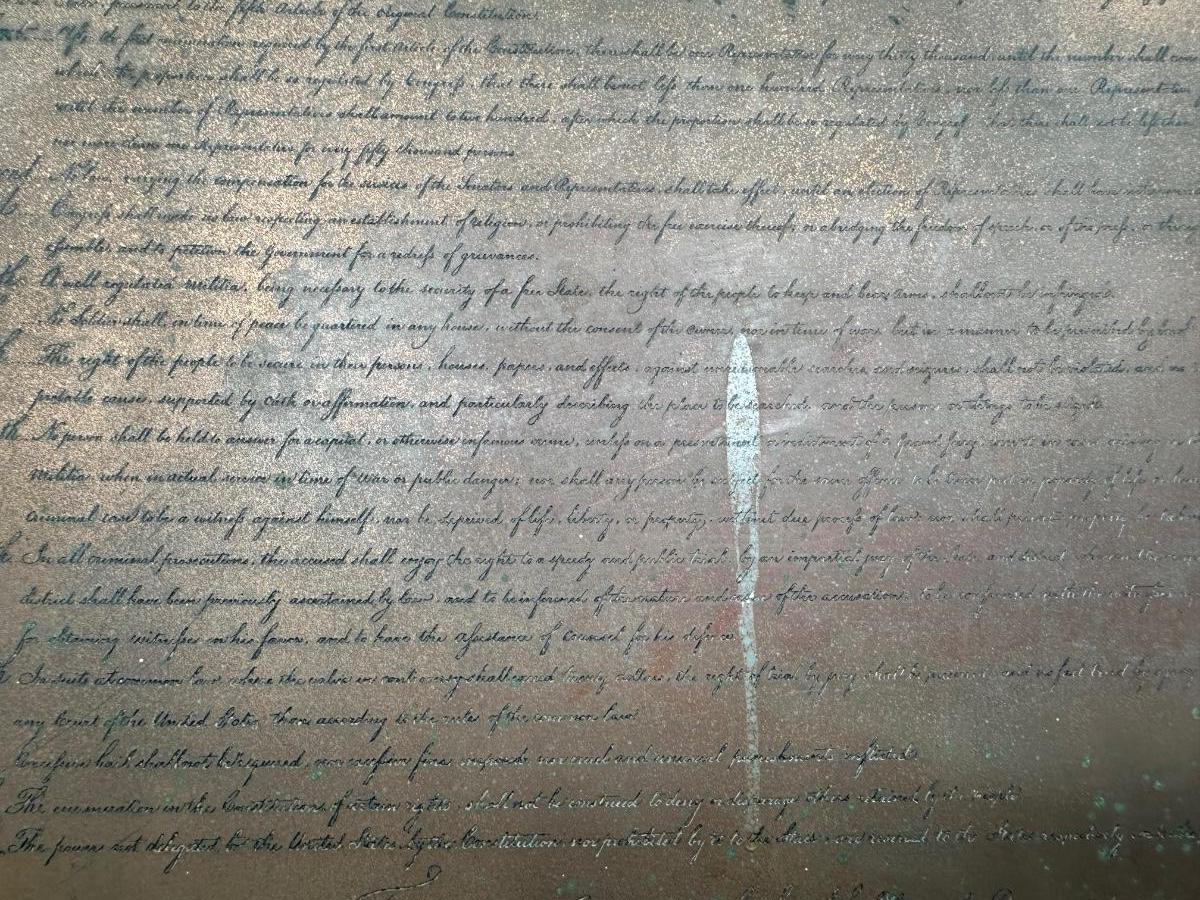 pursuant to the fifth Article of the Original Constitution.
After the first enumeration required by the first Article of the Constitution, there shall be one Representative for every thirty thousand, until the number shall
which the proportion shall be so regulated by Congress, that there shall be not less than one hundred Representatives, nor less than one Representative
until the number of Representatives shall amount to two hundred, after which the proportion shall be so regulated by Congress that there shall not be less than
nor more than one Representative for every fifty thousand persons.
No law, varying the compensation for the services of the Senators and Representatives, shall take effect, until an election of Representatives shall have intervened
Congress shall make no law respecting an establishment of religion, or prohibiting the free exercise thereof; or abridging the freedom of speech, or of the press; or the
assemble, and to petition the Government for a redress of grievances.
A well regulated militia, being necessary to the security of a free State, the right of the people to keep and bear arms, shall not be infringed.
No Soldier shall, in time of peace be quartered in any house, without the consent of the owner, nor in time of war, but in a manner to be prescribed by law.
The right of the people to be secure in their persons, houses, papers, and effects, against unreasonable searches and seizures, shall not be violated, and no
probable cause, supported by oath or affirmation, and particularly describing the place to be searched, and the persons or things to be seized.
No person shall be held to answer for a capital, or otherwise infamous crime, unless on a presentment or indictment of a Grand Jury, except in cases arising in
militia, when in actual service in time of War or public danger; nor shall any person be subject for the same offence to be twice put in jeopardy of life or
criminal case to be a witness against himself, nor be deprived of life, liberty, or property, without due process of law; nor shall private property be taken
In all criminal prosecutions, the accused shall enjoy the right to a speedy and public trial, by an impartial jury of the State and district
district shall have been previously ascertained by law, and to be informed of the nature and cause of the accusation; to be confronted with the witnesses
for obtaining witnesses in his favor, and to have the assistance of counsel for his defence.
In suits at common law, where the value in controversy shall exceed twenty dollars, the right of trial by jury shall be preserved, and no fact tried by
any Court of the United States, than according to the rules of the common law.
Excessive bail shall not be required, nor excessive fines imposed, nor cruel and unusual punishments inflicted.
The enumeration in the Constitution, of certain rights, shall not be construed to deny or disparage others retained by the people.
The powers not delegated to the United States by the Constitution, nor prohibited by it to the States, are reserved to the States respectively